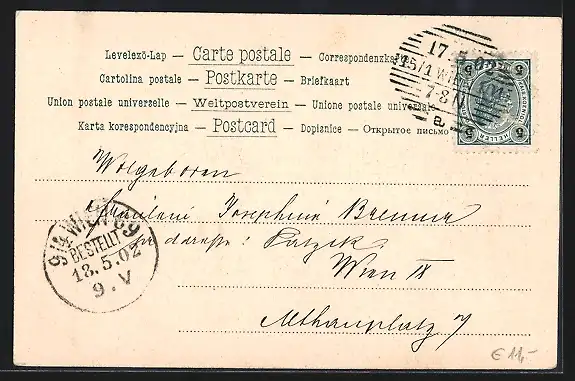 Levelező-Lap — Carte postale — Correspondenzka
Cartolina postale — Postkarte — Briefkaart
Union postale universelle — Weltpostverein — Unione postale universale
Karta korespondencyjna — Postcard — Dopisnice — Открытое письмо
17.
7-8
a
5 5
HELLER
5 5
Wolgeboren
Fräulein Josephine Brenner
9/4 WIEN 69
BESTELLT
18.5.02
9.V
Wien IX
Althanplatz 7
€ 11,-